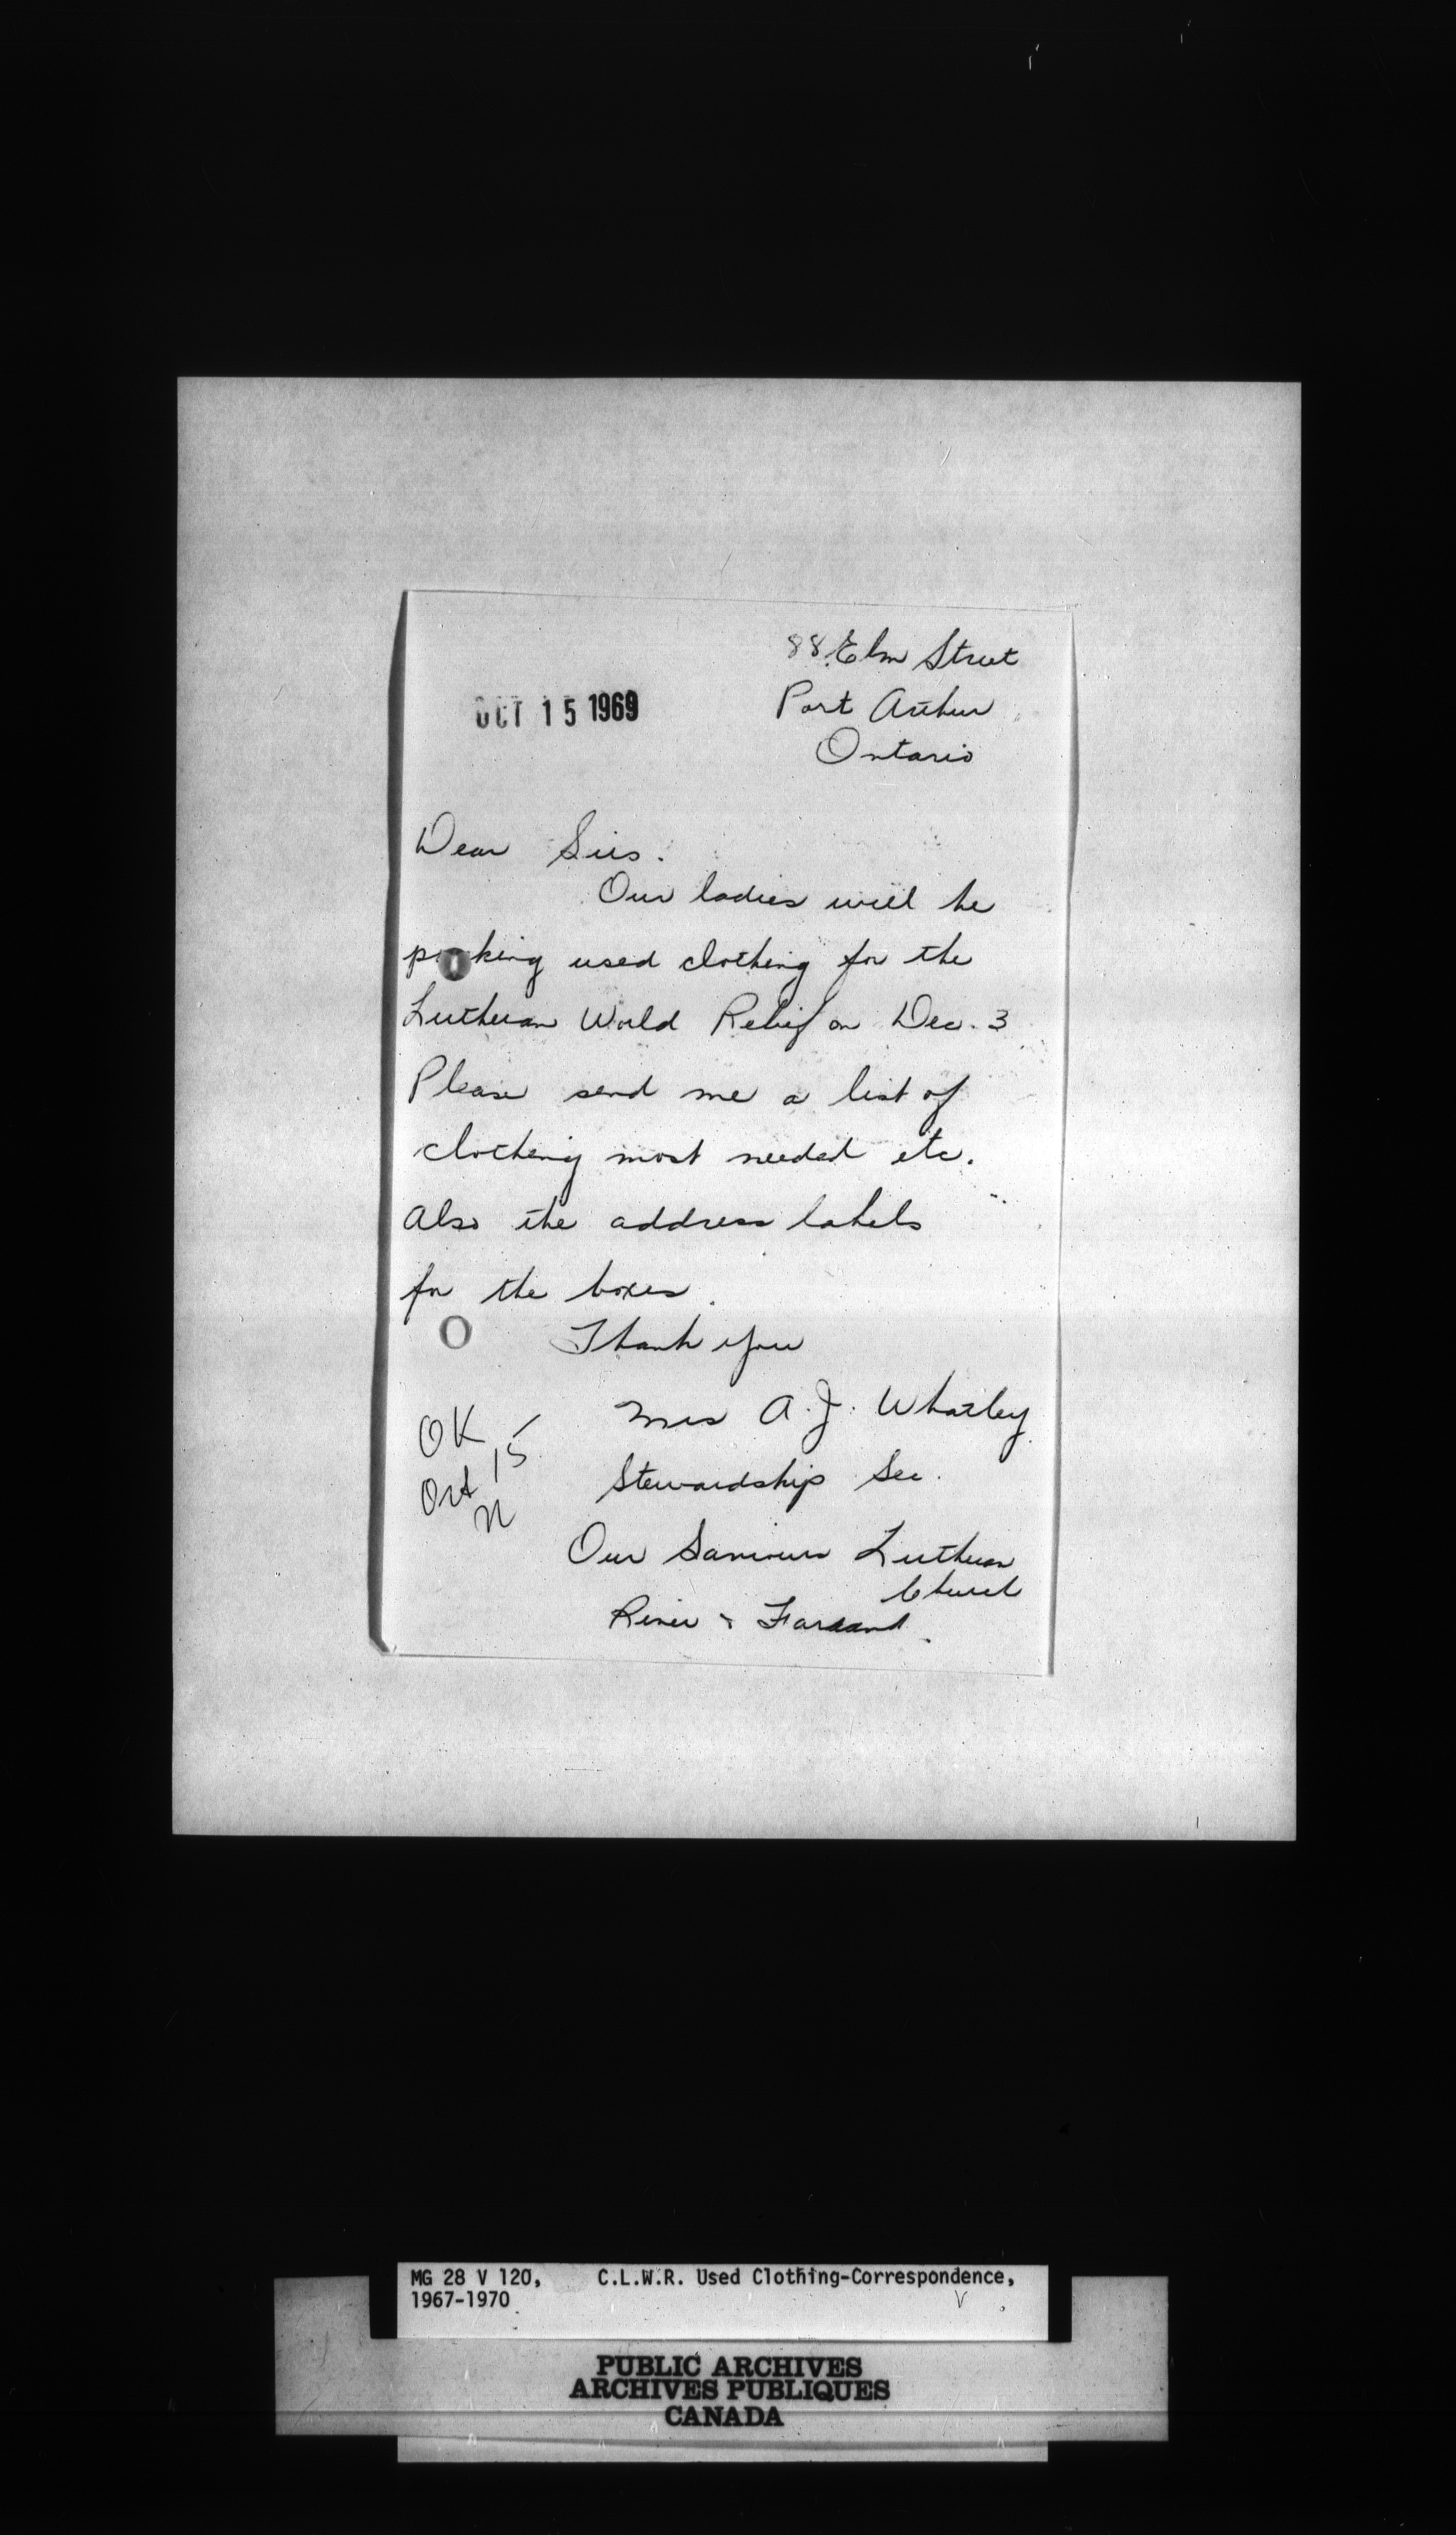 88 Elm Street
OCT 15 1969
Port Arthur
Ontario
Dear Sirs.
Our ladies will be
packing used clothing for the
Lutheran World Relief on Dec. 3
Please send me a list of
clothing most needed etc.
Also the address labels
for the boxes.
Thank you
Mrs A. J. Whatley
Stewardship Sec.
Our Saviours Lutheran
Church
River &
OK
Oct 15
MG 28 V 120, C.L.W.R. Used Clothing-Correspondence,
1967-1970
PUBLIC ARCHIVES
ARCHIVES PUBLIQUES
CANADA